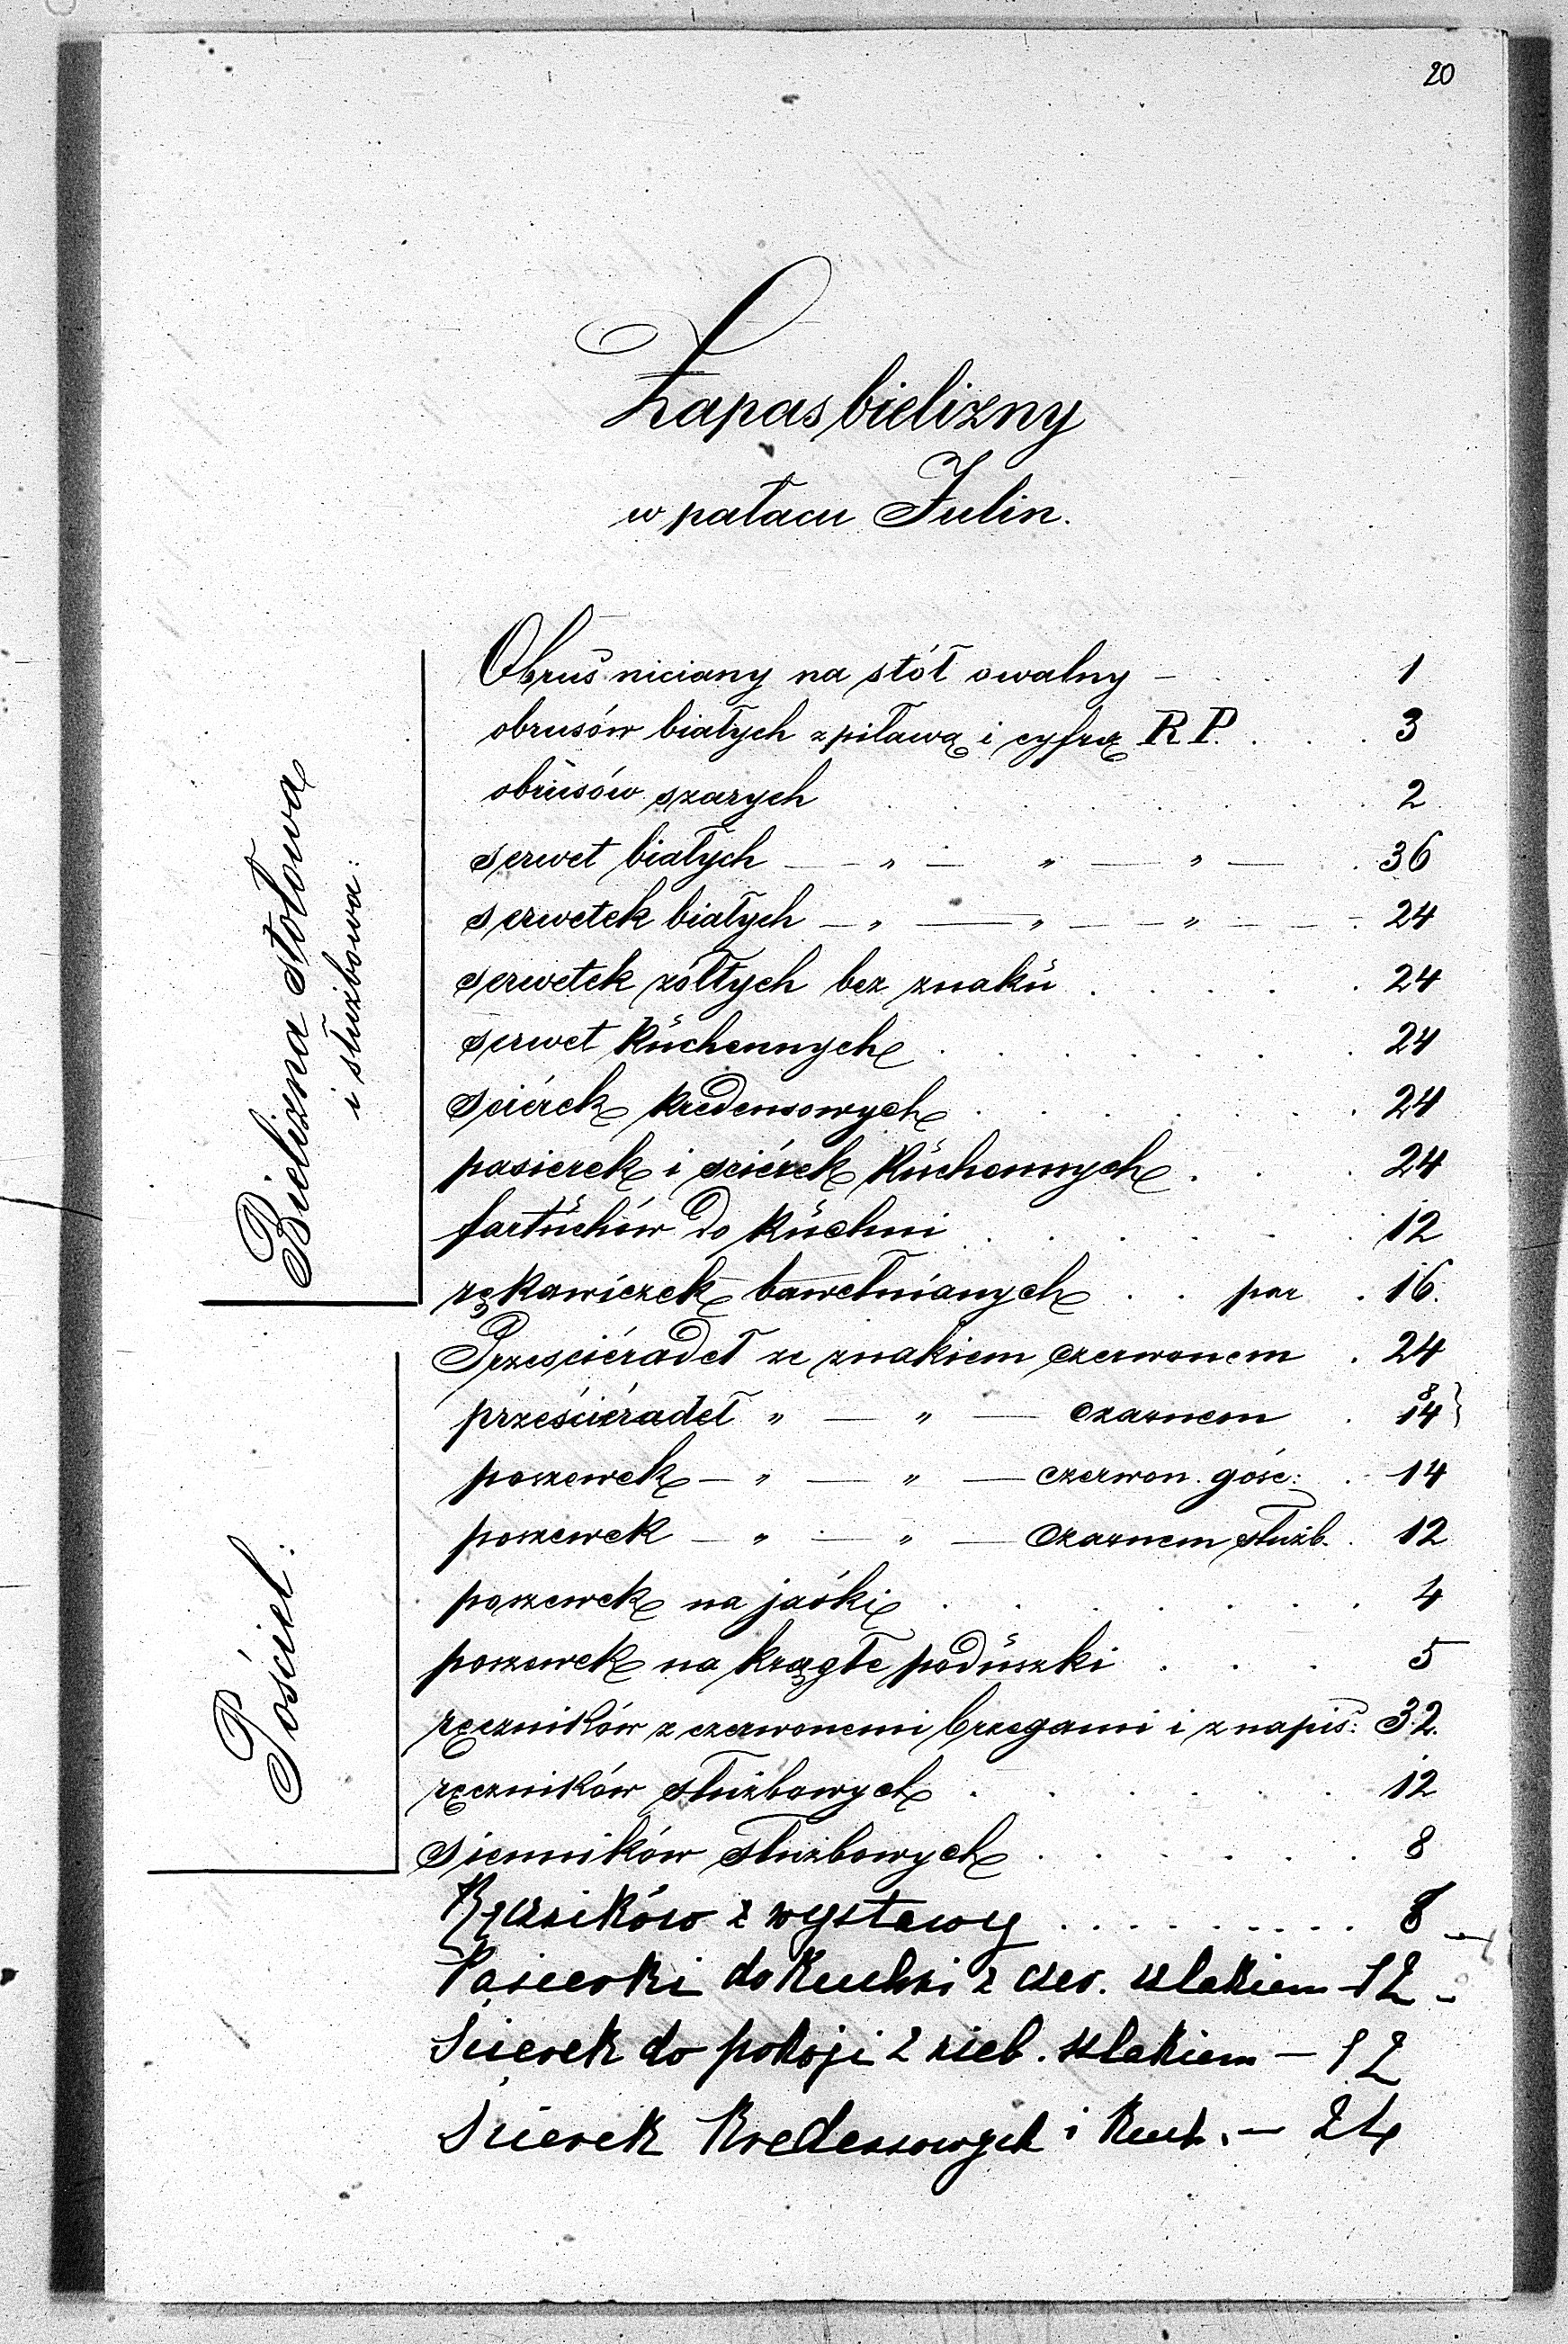 20
Zapas bielizny
w pałacu Julin.
Bielizna stołowa
i służbowa:
Obrus niciany na stół owalny — 1
obrusów białych z piławą i cyfrą R P. . . . 3
obrusów szarych . . . . . . . 2
serwet białych — „ — „ — „ — . 36
serwetek białych — „ — „ — „ — . 24
serwetek żółtych bez znaku . . . . . 24
serwet kuchennych . . . . . . . 24
sciérek kredensowych . . . . . . . 24
pasierek i sciérek kuchennych . . . 24
fartuchów do kuchni . . . . . . . 12
rękawiczek bawełnianych . . par . 16.
Pościel:
Prześciéradeł ze znakiem czerwonem . 24
prześciéradeł „ — „ — czarnem . 8 14 }
poszewek — „ — „ — czerwon. gośc: . 14
poszewek — „ — „ — czarnem służb. . 12
poszewek na jaśki . . . . . . . 4
poszewek na krągłe poduszki . . . 5
ręczników z czerwonemi brzegami i z napis: 32.
ręczników służbowych . . . . . . . 12
sienników służbowych . . . . . . 8
Ręczników z wystawy . . . . . . . . . 8
Pasierki do kuchni z czer. szlakiem — 12 -
Ścierek do pokoji z nieb. szlakiem — 12
Ścierek Kredensowych i kuch. — 24